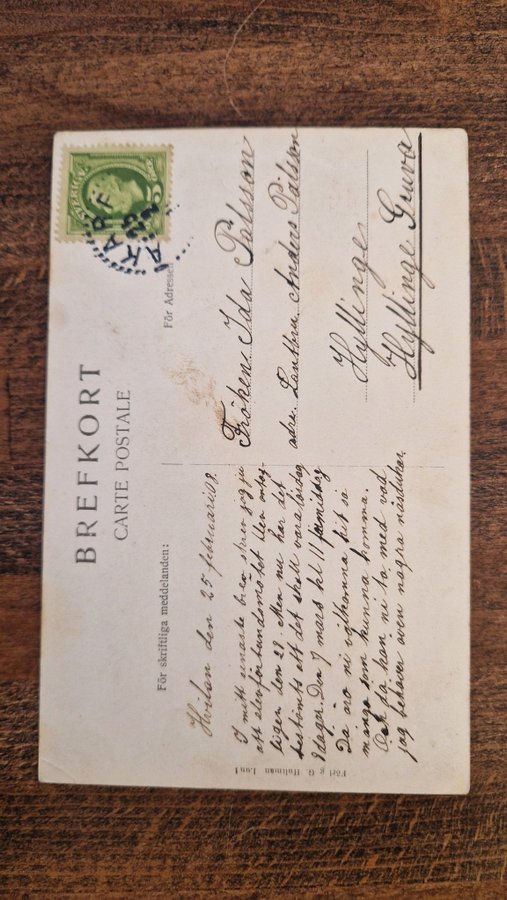 BREFKORT
CARTE POSTALE
För skriftliga meddelanden:
För Adressen
SVERIGE
5
KARF
25
Hvilan den 25 februari 08.
I mitt senaste bref skref jag ju
att elevförbundsmötet blev antag-
ligen den 29. Men nu har det
bestämts att det skall vara lördag
7 dagen. Den 7 mars kl 11 förmiddag
Då äro ni välkomna hit så
många som kunna komma.
Och då kan ni ta med vad
jag behöver även några näsdukar.
Fröken Ida Pålsson
adr. Lantbru Anders Pålsson
Hyllinge
Hyllinge Gruva
Förl. G. Hultman Lund